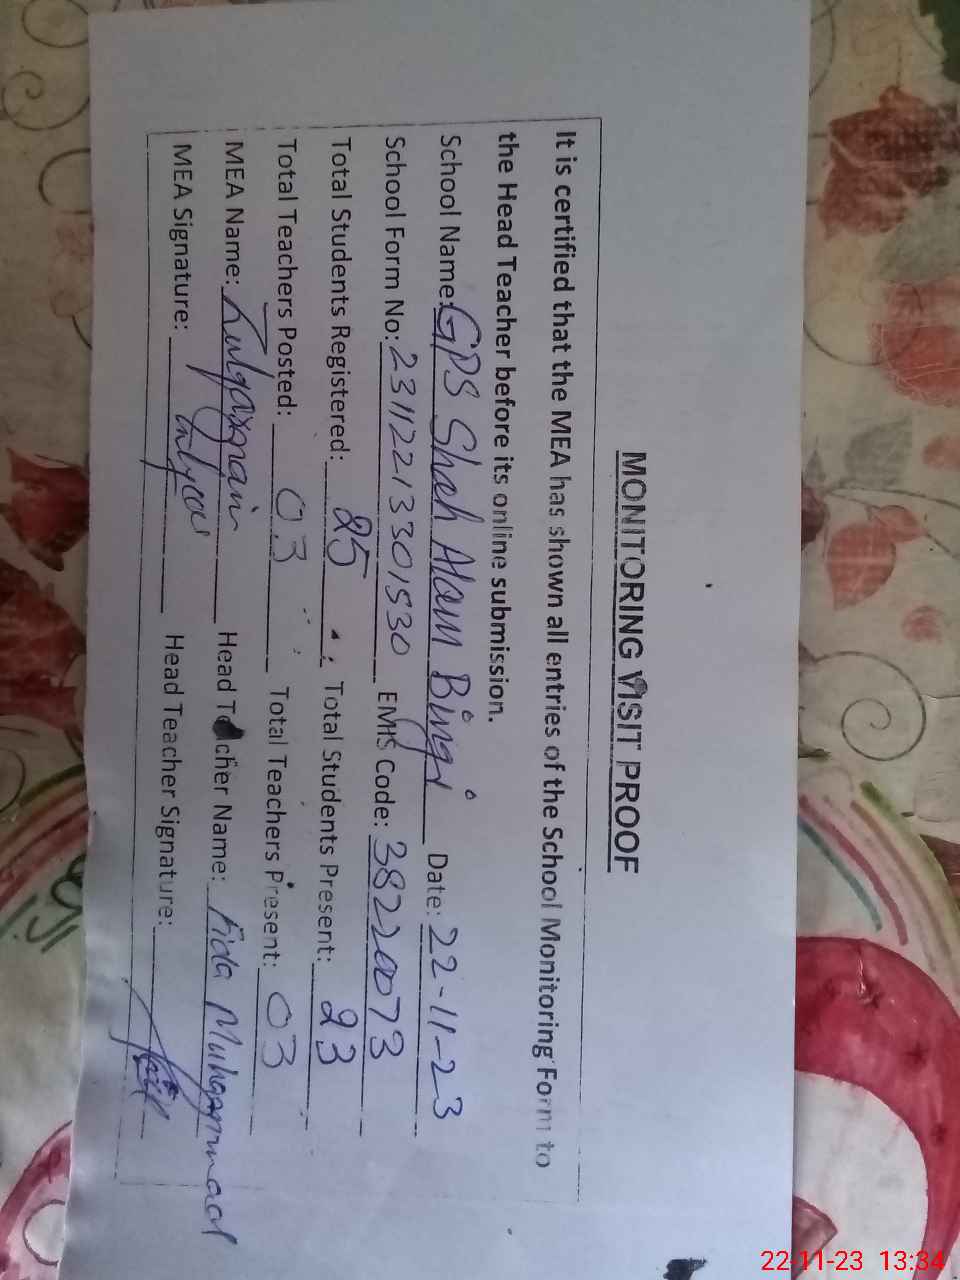 MONITORING VISIT PROOF
It is certified that the MEA has shown all entries of the School Monitoring Form to
the Head Teacher before its online submission.
School Name: GPS Shah Alam Bingi Date: 22-11-23
School Form No: 23112213301530 EMIS Code: 38220073
Total Students Registered: 25 Total Students Present: 23
Total Teachers Posted: 03 Total Teachers Present: 03
MEA Name: Zulqarnain Head Teacher Name: Fida Muhammad
MEA Signature: Head Teacher Signature:
22-11-23 13:34